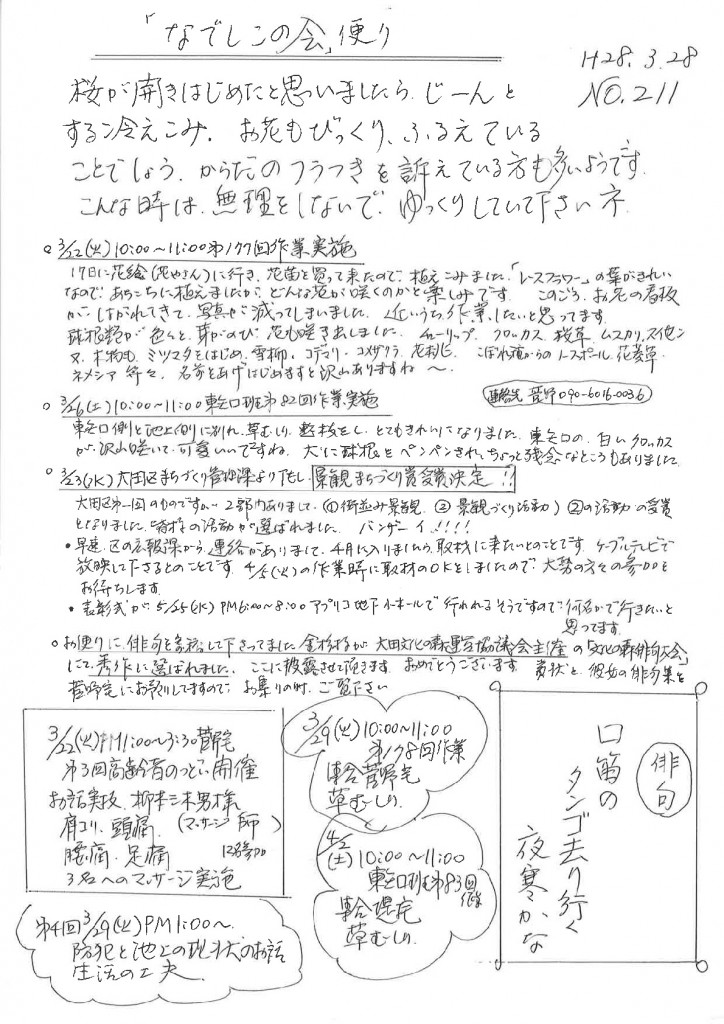 「なでしこの会」便り
H28.3.28
NO.211
桜が開きはじめたと思いましたら、じーんと
する冷えこみ、お花もびっくり、ふるえている
ことでしょう、からだのフラつきを訴えている方も多いようです、
こんな時は、無理をしないで、ゆっくりしていて下さいネ、
○ 3/22(火)10:00~11:00第177回作業実施
17日に花絵(花やさん)に行き、花苗を買って来たので、植えこみました、「レースフラワー」の葉がきれい
なので、あちこちに植えましたが、どんな花が咲くのかと楽しみです、このごろ、お花の看板
がはがれてきて、写真が減ってしまいました、近いうち、作業したいと思ってます、
球根類が色々と、芽がのび、花も咲き出しました、チューリップ、クロッカス、桜草、ムスカリ、スイセン
又、木物も、ミツマタをはじめ、雪柳、コデマリ、コメザクラ、花桃、こぼれ種からのノースポール、花菱草、
ネメシア等々、名前をあげはじめますと沢山ありますね~
連絡先 菅野090-6016-0036
○ 3/26(土)10:00~11:00東ビ口班第82回作業実施
東ビ口側と池上側に別れ、草むしり、整枝をし、とてもきれいになりました、東ビ口の、白いクロッカス
が、沢山咲いて、可愛いいですね、犬に球根をペンペンされ、ちょっと残念なところもありました、
○ 3/23(水)大田区まちづくり管理課より下記し、景観まちづくり賞受賞決定!!
大田区第一回のものですが、2部門ありまして、(①街並み景観、②景観づくり活動)②の活動の受賞
となりました、皆様の活動が選ばれました、バンザーイ!!!!
・早速、区の広報課から、連絡がありまして、4月に入りましたら取材に来たいとのことです、ケーブルテレビで
放映して下さるとのことです、4/5(火)の作業時に取材のOKをしましたので、大勢の方々の参加を
お待ちします、
・表彰式が、5/25(水)PM6:00~8:00アプリコ地下小ホールで行われるそうですので、何名かで行きたいと
思ってます、
○ お便りに、俳句を投稿して下さってました 大田文化の森運営協議会主座の「文化の森俳句大会」
にて、秀作に選ばれました、ここに披露させて頂きます、おめでとうございます、賞状と、彼女の俳句集を
菅野宅にお預りしてますので、お集りの時、ご覧下さい
3/22(火)PM1:00~3:30菅野宅
第3回高齢者のつどい開催
お話実技、柳本三木男様
肩コリ、頭痛、(マッサージ師)
腰痛、足痛 12名参加
3名へのマッサージ実施
第4回3/29(火)PM1:00~
防犯と池上の現状のお話
生活の工夫
3/29(火)10:00~11:00
第178回作業
集合菅野宅
草むしり
4/2
(土)10:00~11:00
東ビ口班第83回作業
集合堤宅
草むしり
俳句
口笛の
タンゴ去り行く
夜寒かな